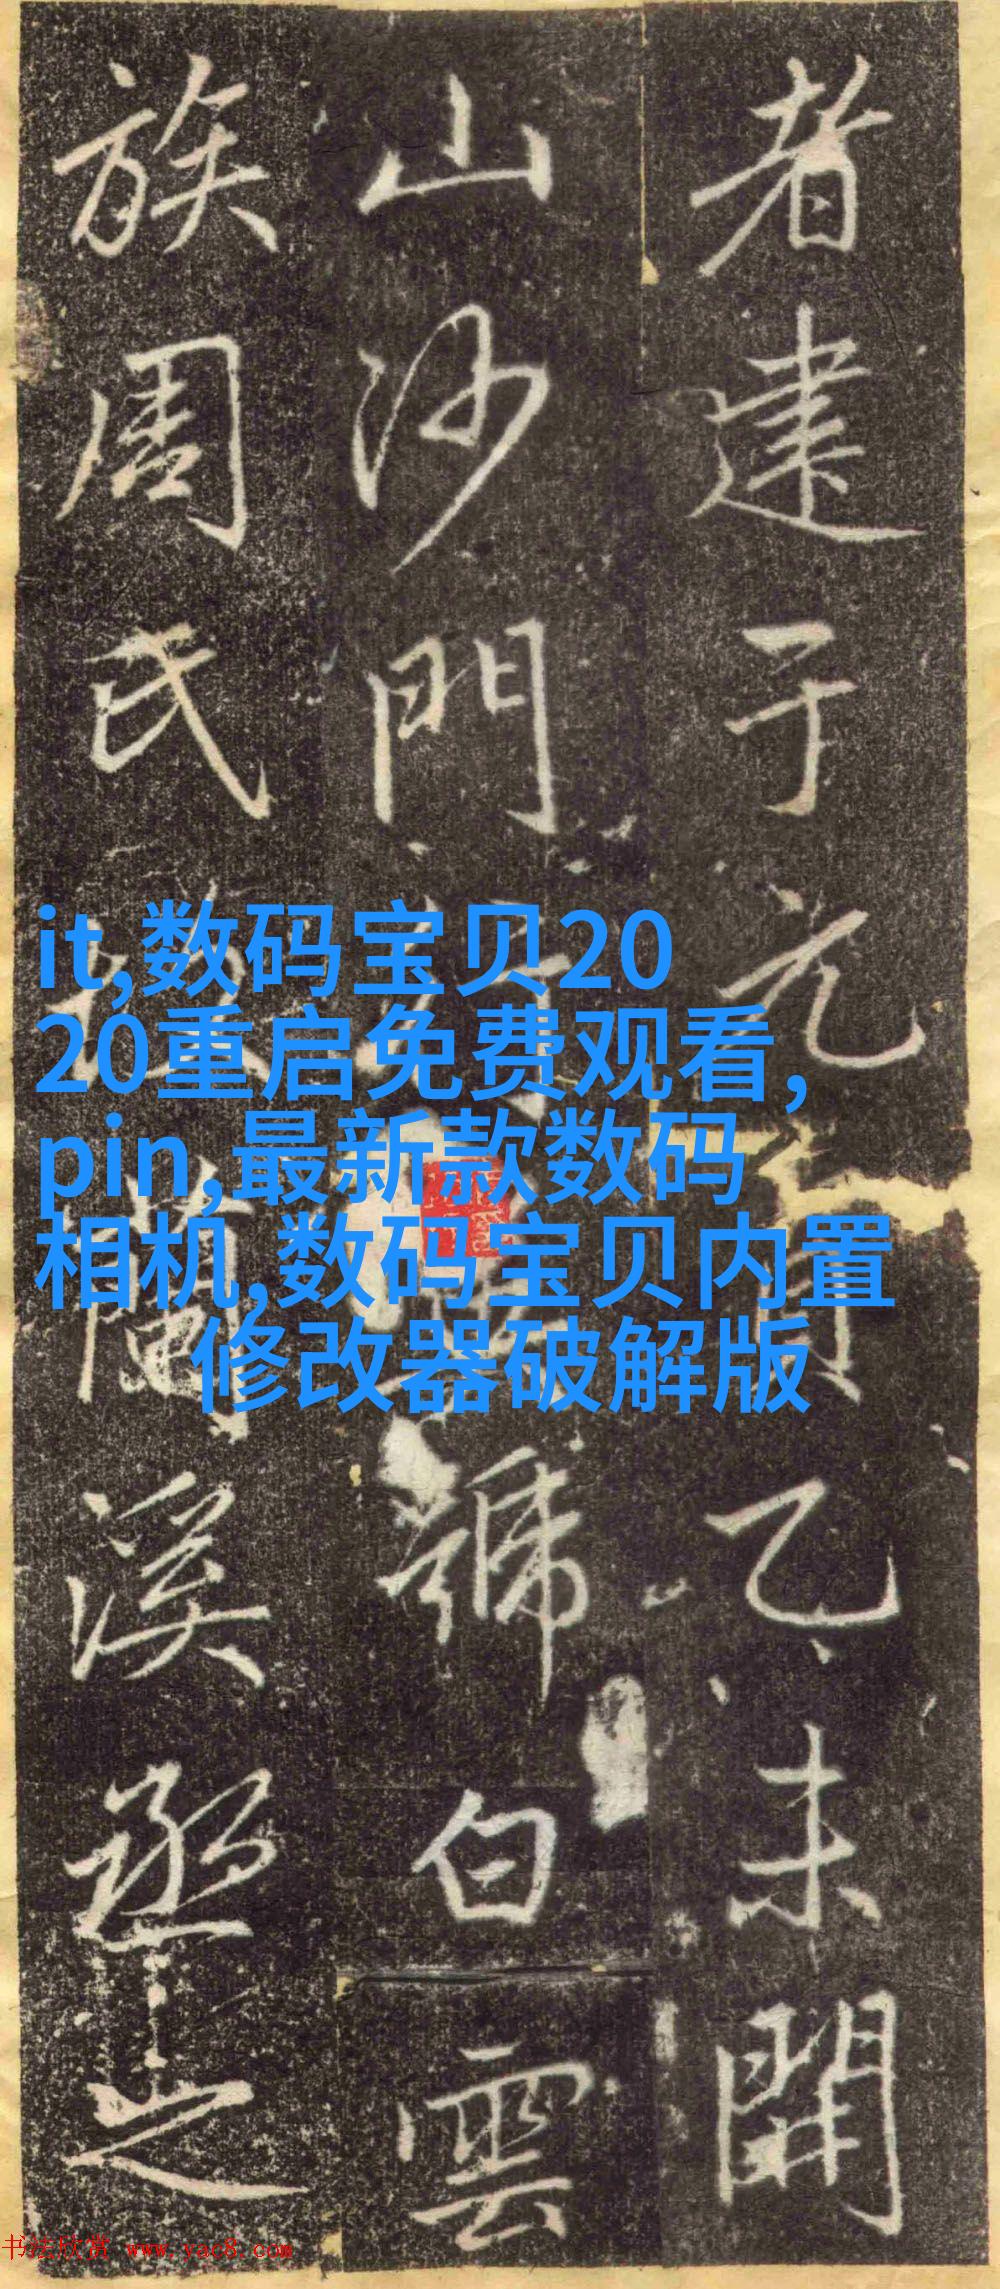 者建于元乙未開
山沙門號白雲
族周氏溪丞之
it,数码宝贝20
20重启免费观看,
pin,最新款数码
相机,数码宝贝内置
修改器破解版
书法欣赏 www.yac8.com